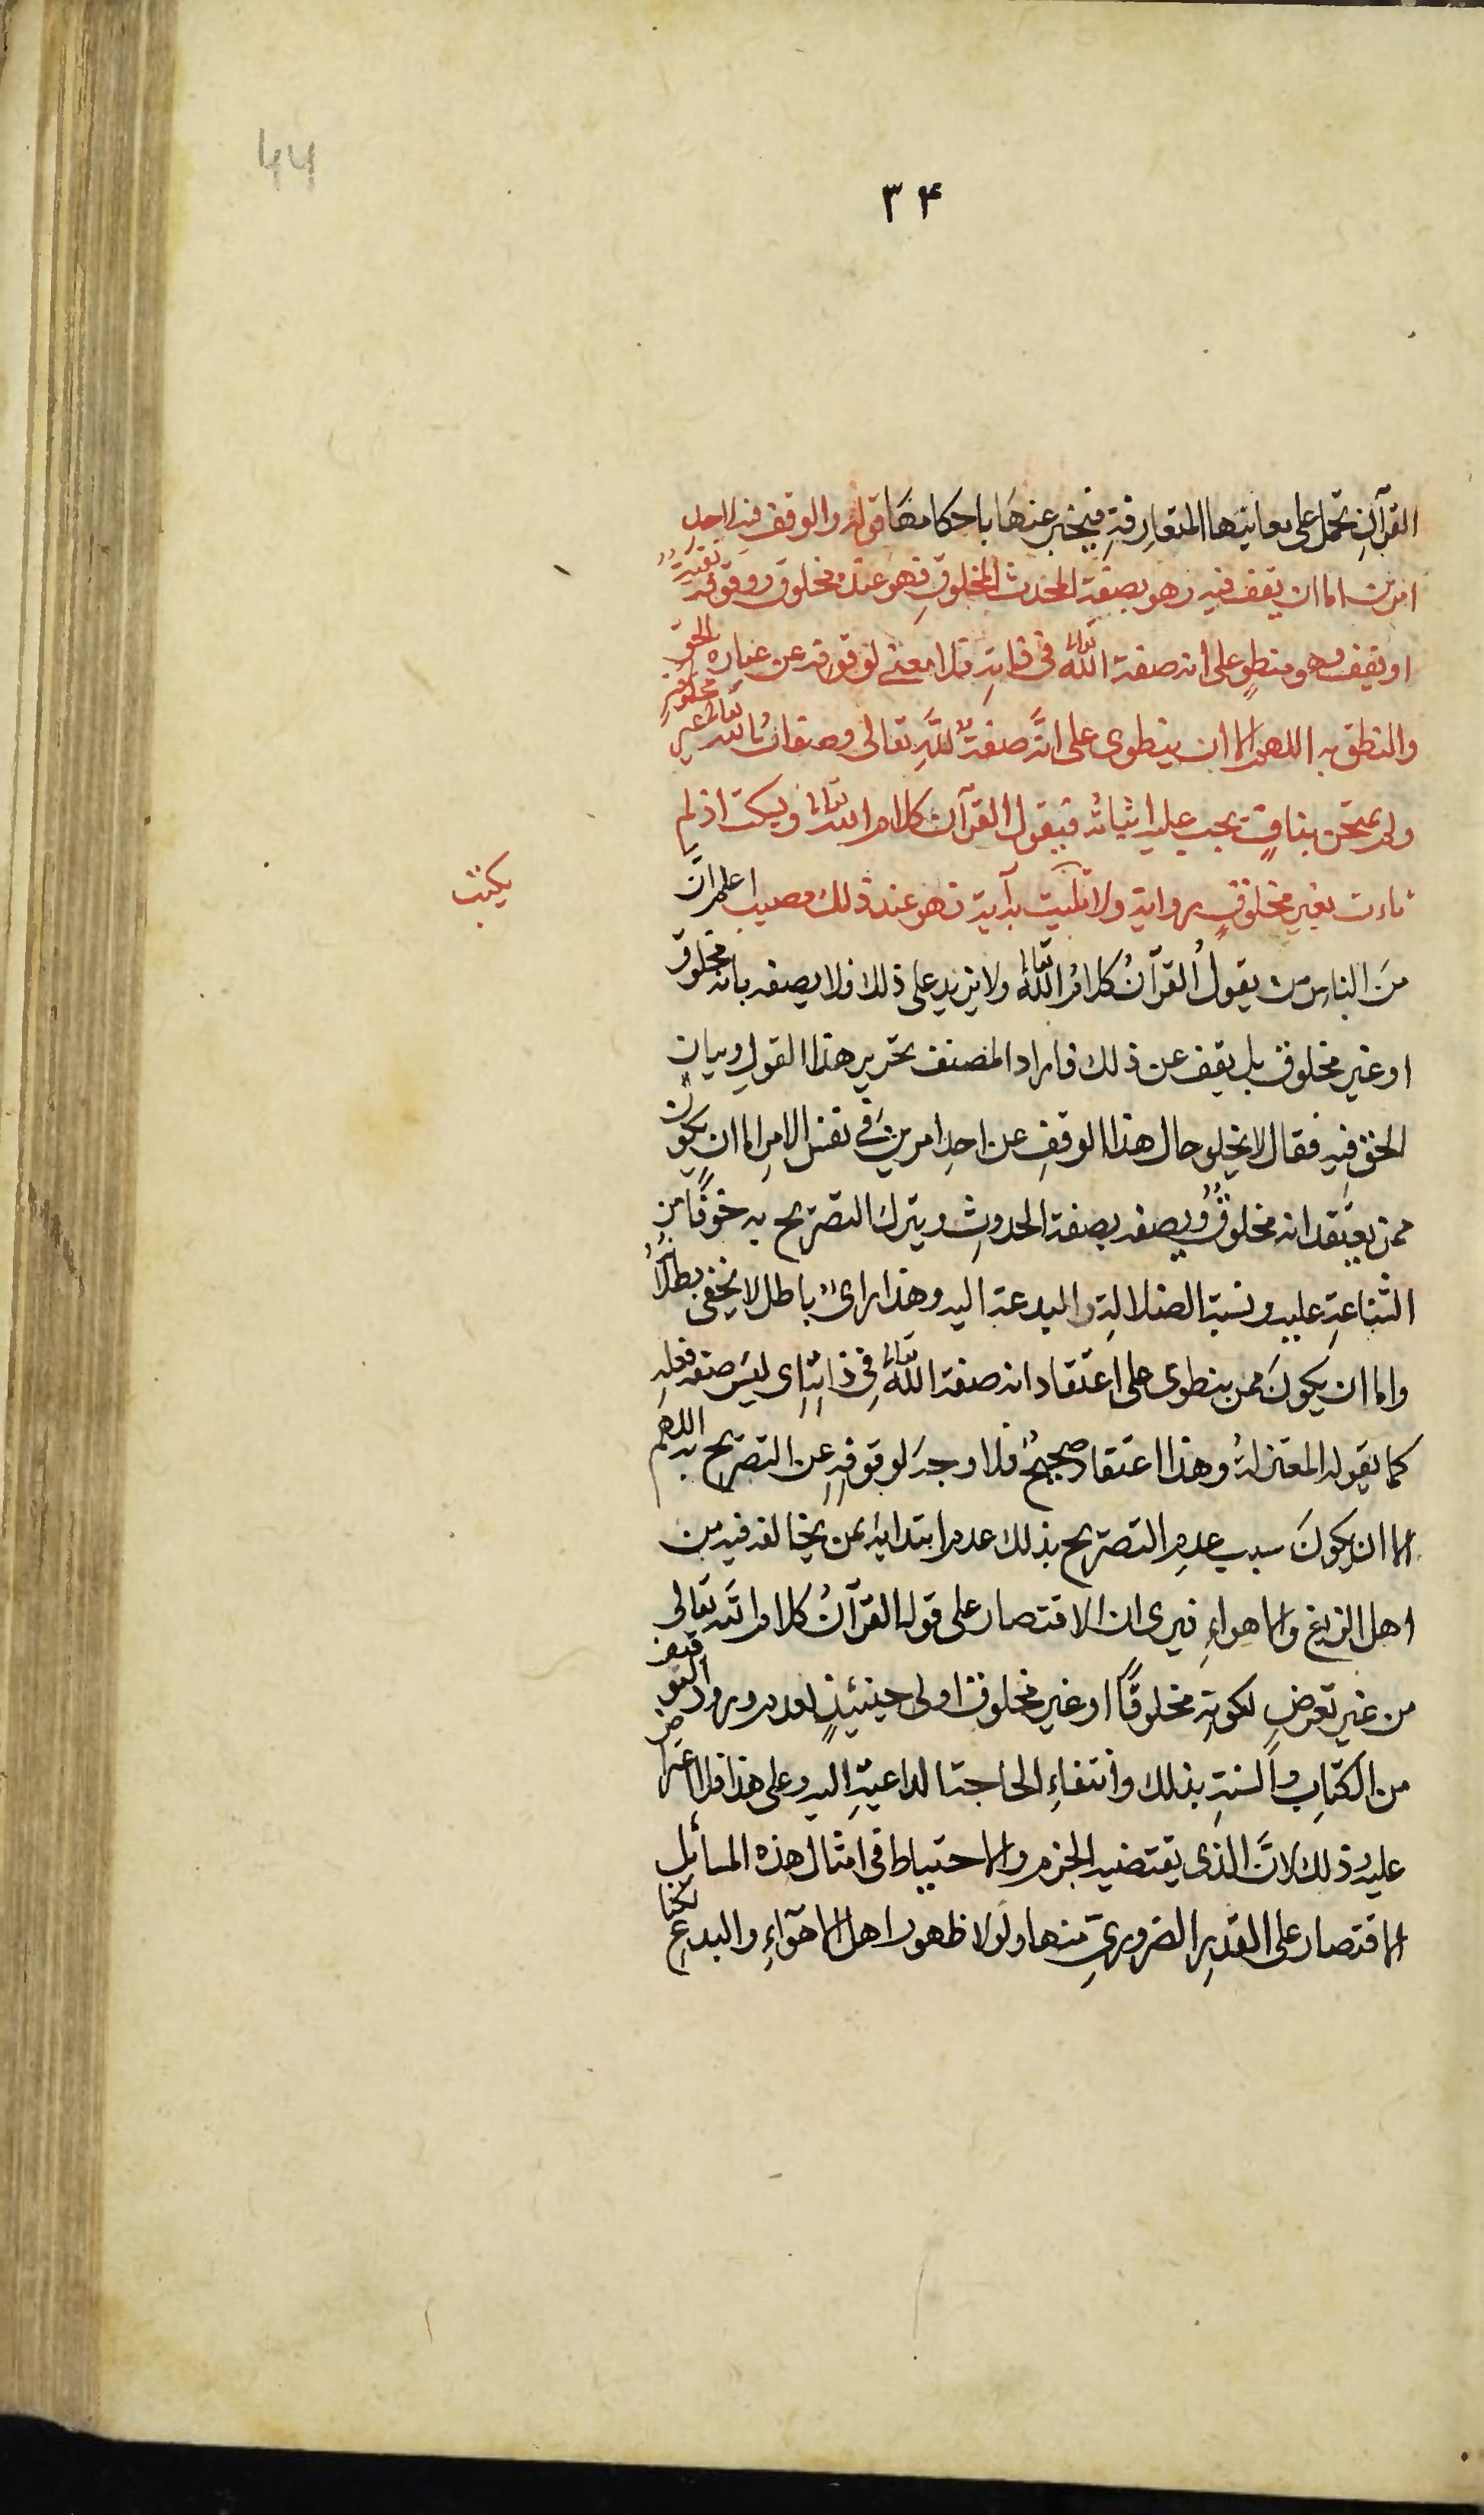 44
٣٤
القرآنِ تحمل على معانيها المتعارفةِ فيخبر عنها باحكامها قوله والوقف فيه احدِ
امرين اما ان يقف فيه وهو بصفة المحدث المخلوقِ فهو عنده مخلوق ووقوفه تقيةٌ
او يقف وهو منطوٍ على انه صفة الله تعالى في ذاتِهِ فلا معنى لوقوفه عن عباره الحق
والنطق به اللهم الا ان ينطوى على انَّه صفةٌ للهِ تعالى وصفاتُ الله تعالى غير مخلوقٍ
ولم يمتحن بنافٍ يجب عليه اثباتُه فيقول القرآن كلام الله تعالى ويسكت اذ لم
يات بغيرِ مخلوقٍ رواية ولا تليت به آية فهو عند ذلك مصيب اعلم انَّ
يكتب
منَ الناس من يقولُ القرآنُ كلامُ الله تعالى ولا يزيد على ذلك فلا يصفه بانه مخلوق
او غير مخلوق بل يقف عن ذلك فاراد المصنف تحرير هذا القولِ وبيان
الحق فيه فقال لا يخلو حال هذا الوقفِ عن احدِ امرين في نفس الامرِ اما ان يكون
ممن يعتقد انه مخلوقٌ ويصفه بصفة الحدوثِ ويترك التصريح به خوفًا من
الشناعةِ عليه ونسبة الضلالةِ والبدعة اليه وهذا رأىٌ باطل لا يخفى بطلانُه
واما ان يكونَ ممن ينطوى على اعتقاد انه صفة الله تعالى في ذاتِهِ اى ليس صفة فعلِهِ
كما يقوله المعتزلةُ وهذا اعتقاد صحيحٌ فلا وجهَ لوقوفِهِ عن التصريح به اللهم
الا ان يكونَ سبب عدمِ التصريح بذلك عدم ابتدائه بمن يخالفه فيه من
اهل الزيغ والاهواءِ فيرى ان الاقتصار على قوله القرآنُ كلام الله تعالى
من غير تعرضٍ لكونِهِ مخلوقًا او غير مخلوق اولى حينئذٍ لعدم ورود التوقيف
من الكتابِ والسنةِ بذلك وانتفاءِ الحاجة الداعيةِ اليه وعلى هذا فلا اعتراض
عليه وذلك لانَّ الذى يقتضيه الحزم والاحتياط فى امثال هذه المسائل
الاقتصار على القدرِ الضرورىِّ منها ولولا ظهور اهل الاهواءِ والبدع لكنا